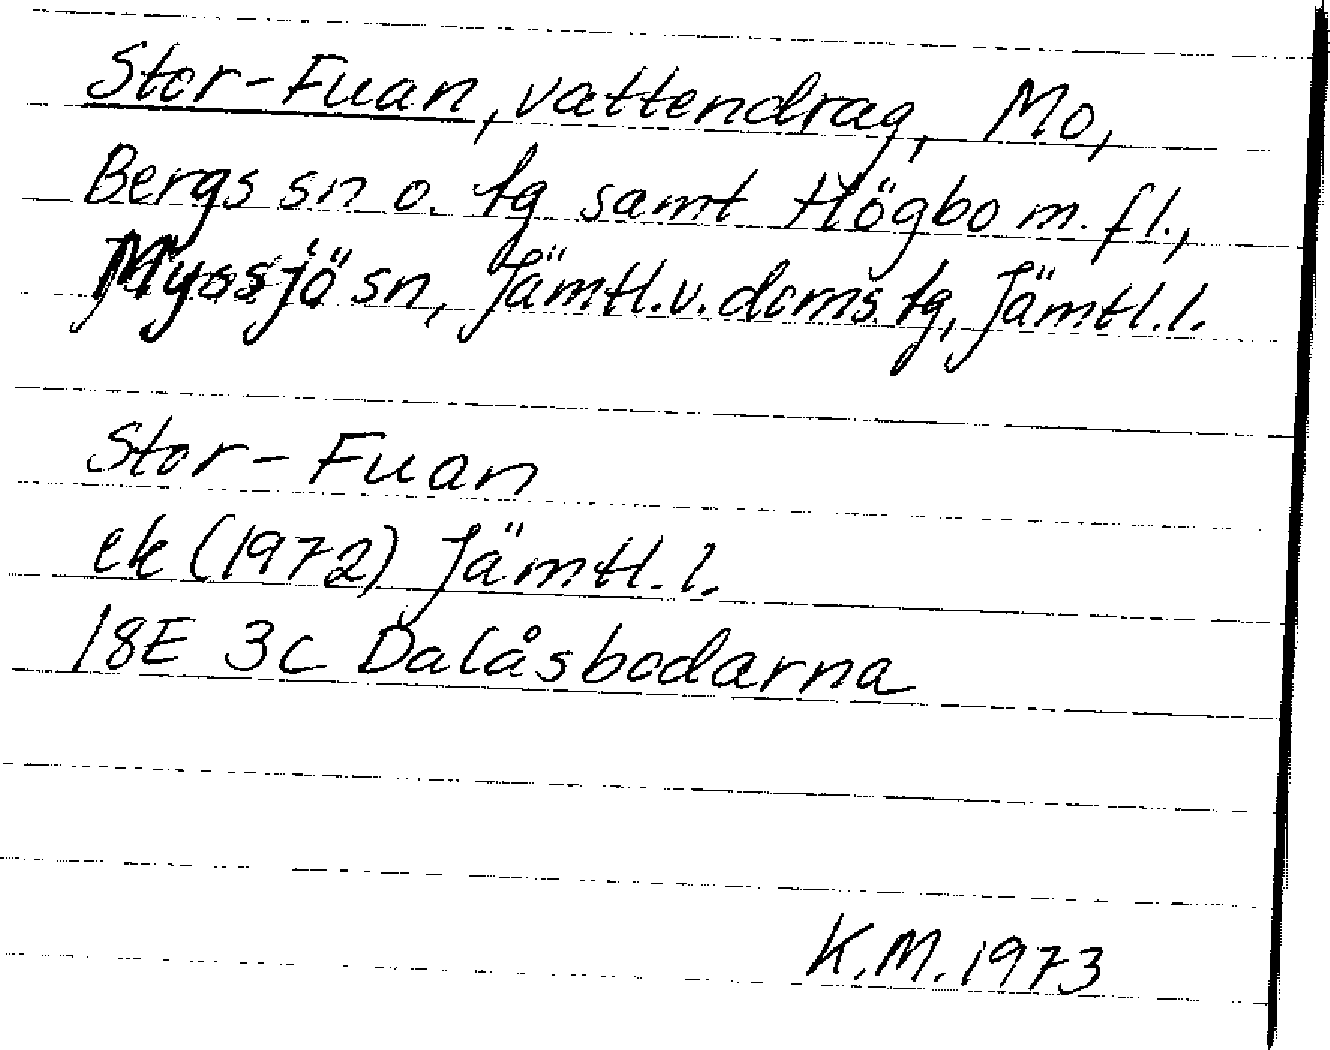 Stor-Fuan, vattendrag, Mo,
Bergs sn o. tg samt Högbo m. fl.,
Myssjö sn, Jämtl. v. doms. tg, Jämtl. l.
Stor-Fuan
ek (1972) Jämtl. l.
18E 3c Dalåsbodarna
K.M. 1973